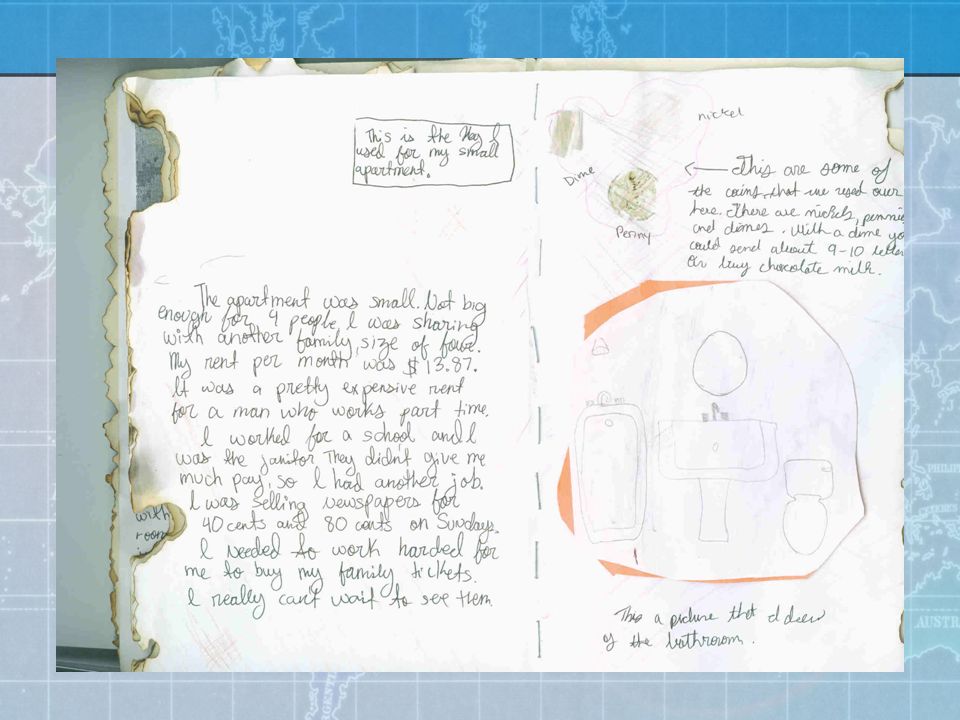 This is the Key I
used for my small
apartment.
The apartment was small. Not big
enough for 4 people, I was sharing
with another family, size of four.
My rent per month was $13.87.
It was a pretty expensive rent
for a man who works part time.
I worked for a school and I
was the janitor They didn't give me
much pay, so I had another job.
I was selling newspapers for
40 cents and 80 cents on Sundays.
I needed to work harded for
me to buy my family tickets.
I really can't wait to see them.
with
room
nickel
Dime
Penny
This are some of
the coins, that we used over
here. There are nickels, pennie
and dimes. With a dime yo
could send about 9-10 letter
Or buy chocolate milk.
This a picture that I drew
of the bathroom.
PHILIP
AUSTR
ARGENTIN